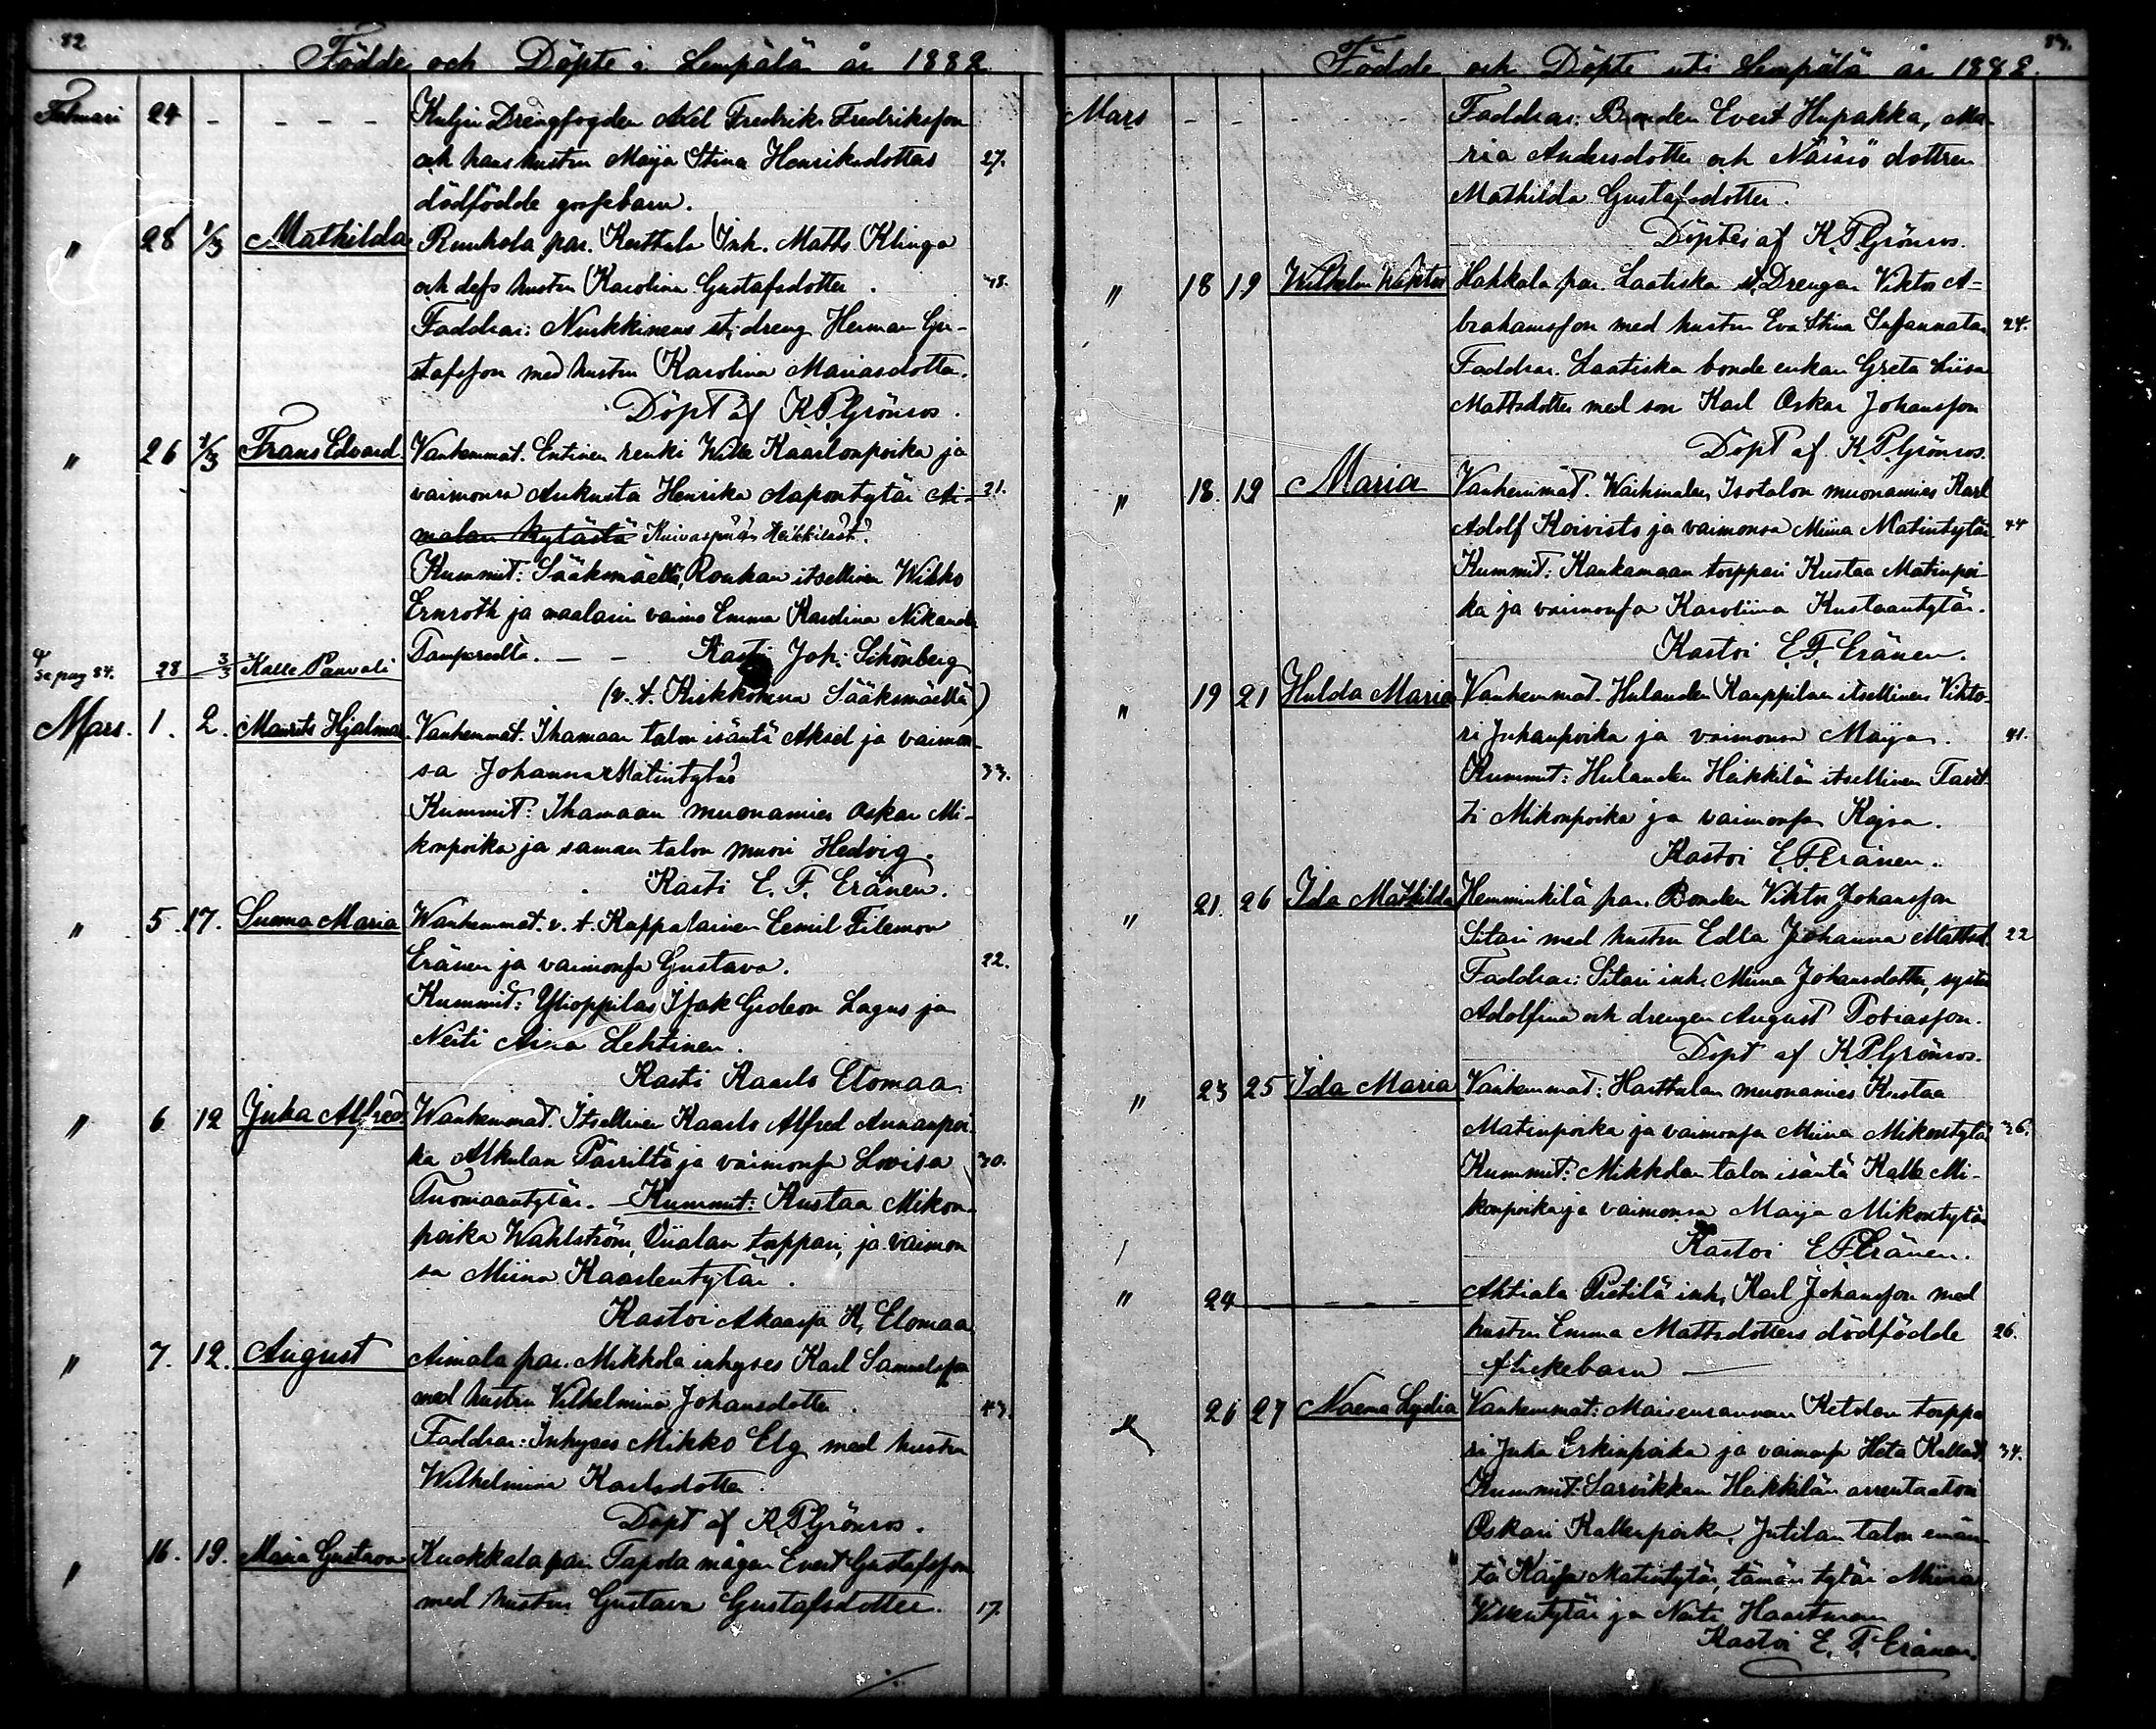 82
Födde och Döpte i Lempälä år 1882
Februari 24 - - - - Kulju Drengfogden Axel Fredrik Fredriksson
och hans hustru Maija Stina Henriksdotters 27.
dödfödde gossebarn.
" 28 1/3 Mathilda Ruuhola par. Kerttula Inh. Matts Klinga
och dess hustru Karolina Gustafsdotter. 48.
Faddrar: Nurkkinens st. dreng Herman Gu-
stafsson med hustru Karolina Mariasdotter.
Döpt af K. P. Grönroos.
" 26 1/3 Frans Edvard Vanhemmat. Entinen renki Wille Kaarlonpoika ja
vaimonsa Aukusta Henrika Aapontytär Ai- 21.
malan kylästä Heikkiläst.
Kummit: Sääksmäeltä, Roukan itsellinen Wikko
Ernroth ja maalarin vaimo Emma Karolina Nikander
Tampreelta. — — Kasti Joh. Schönberg
se pag 84. 28 3/3 Kalle Paavali
(v. t. Kirkkoherra Sääksmäellä)
Mars. 1. 2. Maurits Hjalmar Vanhemmat. Ihamaan talon isäntä Aksel ja vaimon-
sa Johanna Matintytär 33.
Kummit: Ihamaan muonamies Oskar Mi-
konpoika ja saman talon muori Hedvig.
Kasti E. F. Eränen.
" 5. 17. Sunna Maria Wanhemmat. v. t. Kappalainen Eemil Filemon
Eränen ja vaimonsa Gustava. 22.
Kummit: Ylioppilas Isak Gideon Lagus ja
Neiti Aina Lehtinen.
Kasti Kaarlo Elomaa
" 6 12 Juha Alfred Wanhemmat. Itsellinen Kaarlo Alfred Annanpoi-
ka Alkulan Pärriltä ja vaimonsa Lovisa 30.
Tuomaantytär. — Kummit: Kustaa Mikon-
poika Wahlström, Viialan torppari, ja vaimon
sa Miina Kaarlentytär.
Kastoi Akaassa K. Elomaa
" 7. 12. August Aimala par. Mikkola inhyses Karl Samuelsson
med hustru Vilhelmina Johansdotter. 43.
Faddrar: Inhyses Mikko Elg med hustru
Wilhelmina Karlsdotter.
Döpt af K. P. Grönroos.
" 16. 19. Maria Gustava Kuokkala par. Tapola mågen Evert Gustafsson
med hustru Gustava Gustafsdotter. 17.
Födde och Döpte uti Lempälä år 1882.
Mars - - - - Faddrar: Bonden Evert Hupakka, Ma-
ria Andersdotter och Nässiö dottren
Mathilda Gustafsdotter.
Döptes af K. P. Grönroos.
" 18 19 Wilhelm Wiktor Hakkala par. Laatiska st. Drengen Viktor A-
brahamsson med hustru Eva Stina Susannatar 24.
Faddrar. Laatiska bonde enkan Greta Liisa
Mattsdotter med son Karl Oskar Johansson
Döpt af K. P. Grönroos.
" 18. 19 Maria Vanhemmat. Isotalon muonamies Karl
Adolf Koivisto ja vaimonsa Miina Matintytär. 44
Kummit: Kaukamaan torppari Kustaa Matinpoi-
ka ja vaimonsa Karoliina Kustaantytär.
Kastoi E. F. Eränen.
" 19 21 Hulda Maria Vanhemmat. Hulauden Kauppilan itsellinen Vikto-
ri Juhanpoika ja vaimonsa Maija. 41.
Kummit: Hulauden Heikkilän itsellinen Tavet-
ti Mikonpoika ja vaimonsa Kajsa.
Kastoi E. F. Eränen.
" 21. 26 Ida Mathilda Hemminkilä par. Bonden Viktor Johansson
Sitari med hustru Edla Johanna Mattsd. 22
Faddrar: Sitari inh. Miina Johansdotter, syster
Adolfina och drengen August Tobiasson.
Döpt af K. P. Grönroos.
" 23 25 Ida Maria Vanhemmat: Harttulan muonamies Kustaa
Matinpoika ja vaimonsa Miina Mikontytär 36.
Kummit: Mikkolan talon isäntä Kalle Mi-
konpoika ja vaimonsa Maija Mikontytär
Kastoi E. F. Eränen.
" 24 - - - - Ahtiala Pietilä inh. Karl Johansson med
hustru Emma Mattsdotters dödfödde 26.
flickebarn —
26 27 Naema Lydia Vanhemmat: Maisenrannan Ketolan torppa
ri Juha Erkinpoika ja vaimonsa Heta Kallent. 34.
Kummit: Sarvikkan Heikkilän arrentaatori
Oskari Kallenpoika, Jutilan talon emän-
tä Kaisa Matintytär, tämän tytär Miina
Villentytär ja Neiti Haartman
Kastoi E. F. Eränen.